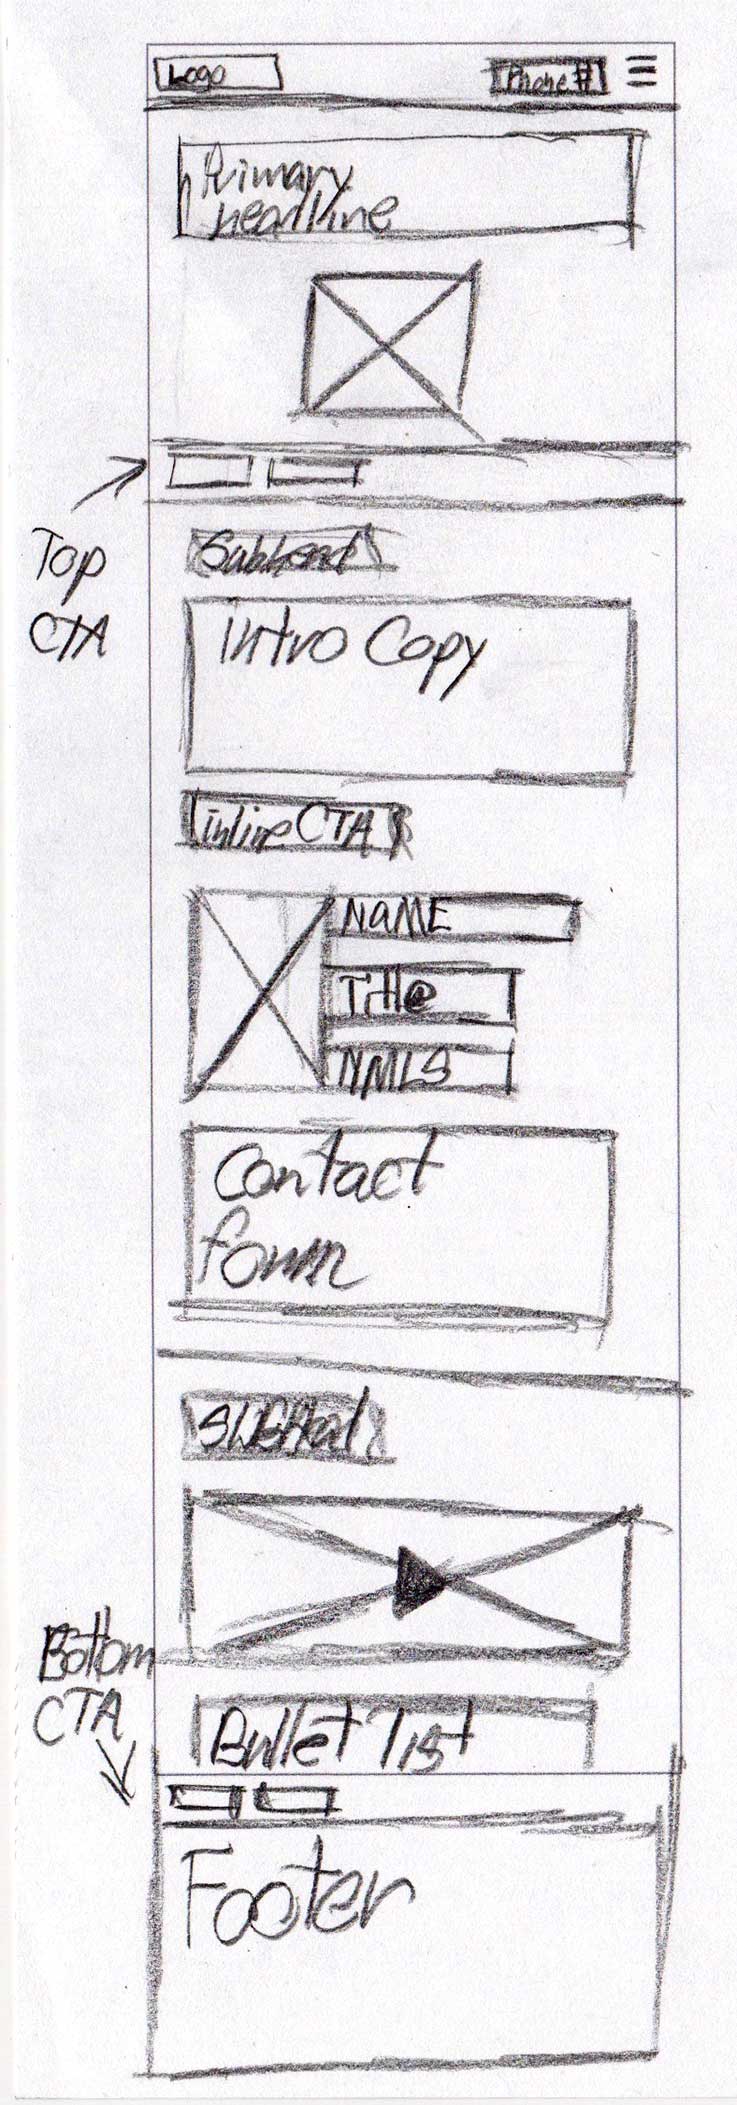 Logo
Phone #
Primary
headline
Top
CTA
Subhead
Intro Copy
inline CTA
NAME
Title
NMLS
Contact
form
SUBHead
Bottom
CTA
Bullet List
Footer